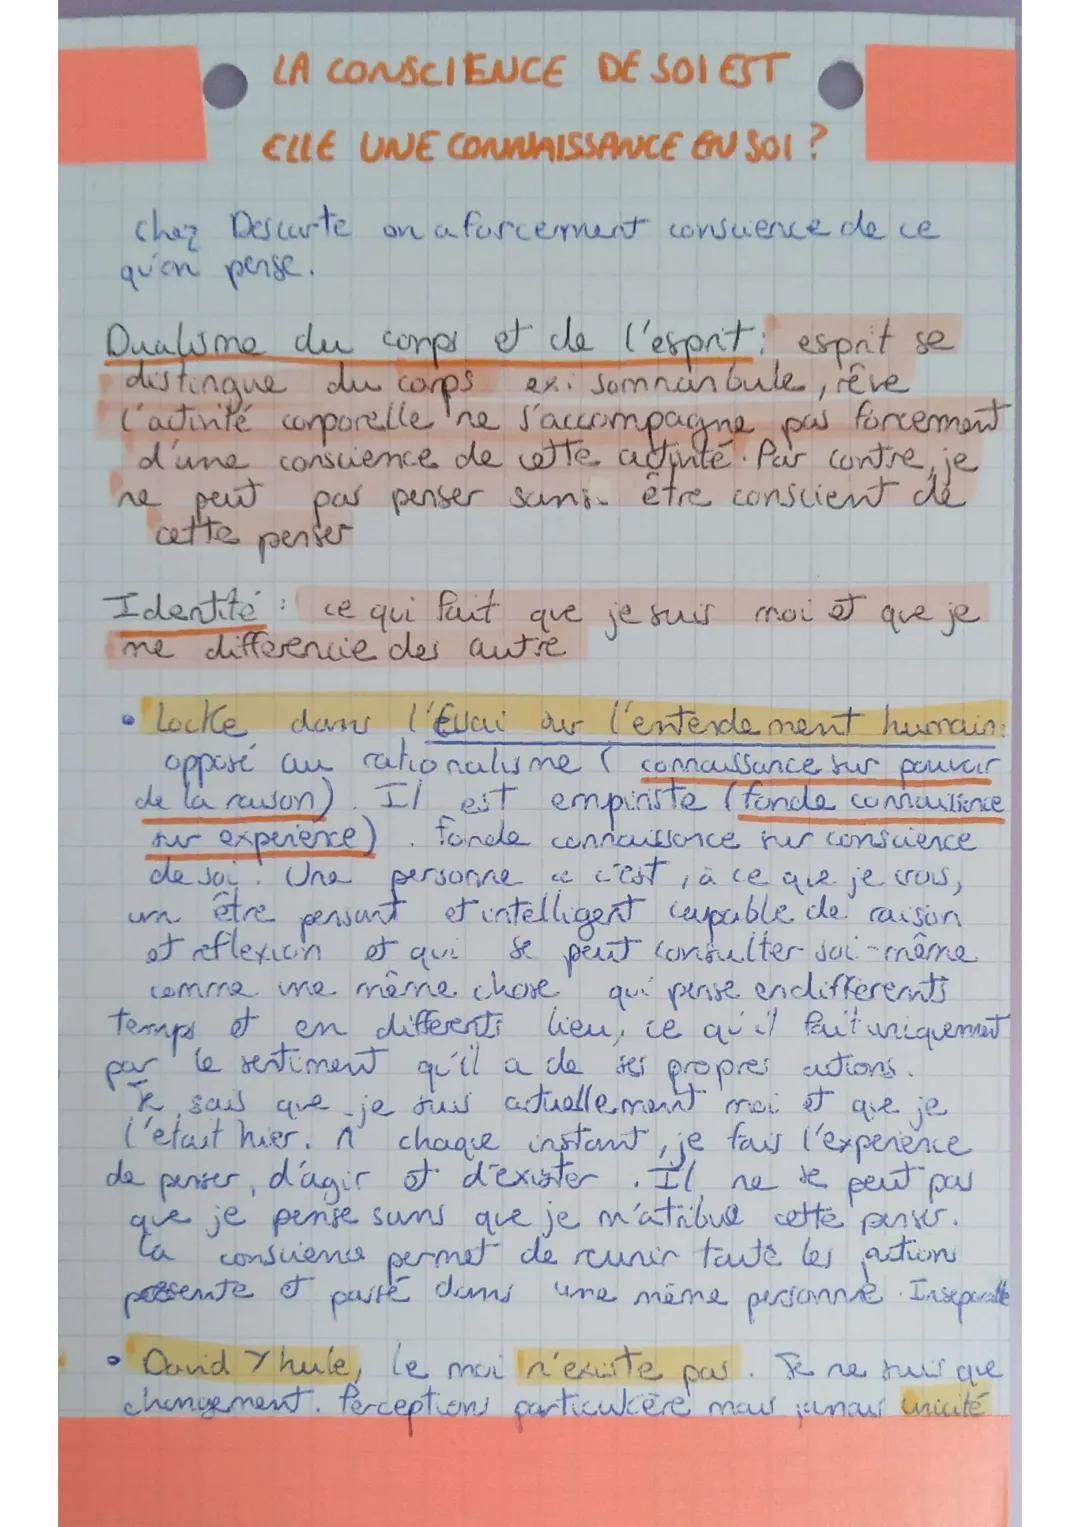 LA CONSCIENCE DE SOI EST
ELLE UNE CONNAISSANCE EN SOI ?
Chez Descarte on a forcement conscience de ce
qu'on pense.
Dualisme du corps et de l'esprit : esprit se
distingue du corps ex: somnanbule, rêve
L'activité corporelle ne s'accompagne pas forcement
d'une conscience de cette activité. Par contre, je
ne peut pas penser sans être conscient de
cette penser
Identité : ce qui fait que je suis moi et que je
me differencie des autre
• Locke dans l'Essai sur l'entendement humain:
opposé au rationalisme ( connaissance sur pouvoir
de la raison). Il est empiriste (fonde connaissance
sur experience). fonde connaissance sur conscience
de soi. Une personne c'est, à ce que je crois,
un être pensant et intelligent capable de raison
et reflexion et qui se peut consulter soi-même
comme une même chose qui pense en differents
temps et en differents lieu, ce qu'il fait uniquement
par le sentiment qu'il a de ses propres actions.
Je sais que je suis actuellement moi et que je
l'etait hier. A chaque instant, je fais l'experience
de penser, d'agir et d'exister. Il ne se peut pas
que je pense sans que je m'atribue cette penser.
La conscience permet de reunir toute les action
presente et passé dans une même personne. Inseparable
• David Yhule, le moi n'existe pas. Je ne suis que
changement. Perceptions particulière mais jamais unicité